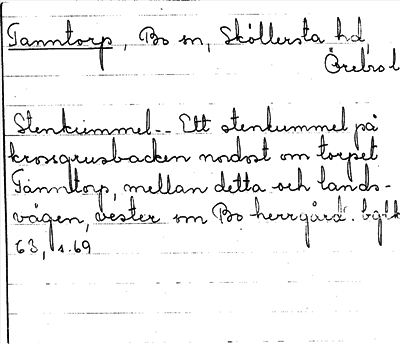 Tanntorp, Bo sn, Sköllersta hd,
Örebro l
Stenkummel-- Ett stenkummel på
krossgrusbacken nordost om torpet
Tanntorp, mellan detta och lands-
vägen, vester om Bo herrgård. bglk
63, s. 69